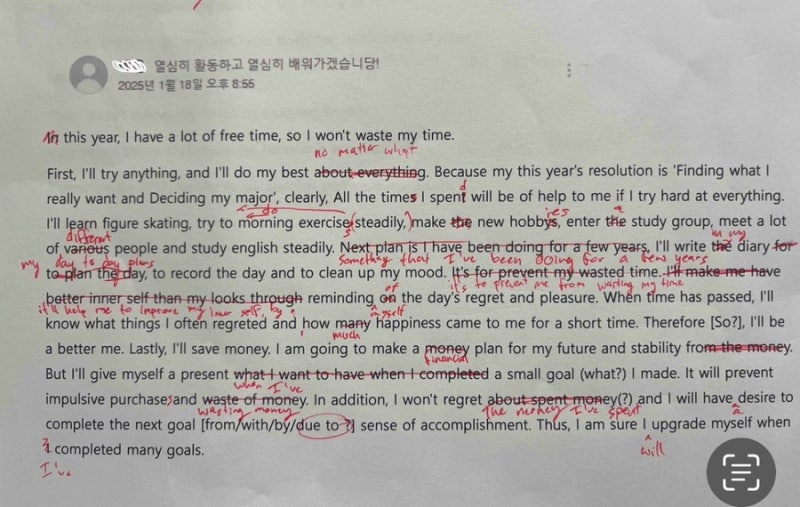 열심히 활동하고 열심히 배워가겠습니당!
2025년 1월 18일 오후 8:55
In this year, I have a lot of free time, so I won't waste my time.
no matter what
First, I'll try anything, and I'll do my best about everything. Because my this year's resolution is 'Finding what I
really want and Deciding my major', clearly, All the times I spent will be of help to me if I try hard at everything.
do
I'll learn figure skating, try to morning exercise(steadily,)make the new hobbys, enter the study group, meet a lot
different
of various people and study english steadily. Next plan is I have been doing for a few years, I'll write the diary for
my day to day plans something that I've been doing for a few years
to plan the day, to record the day and to clean up my mood. It's for prevent my wasted time. I'll make me have
it's to prevent me from wasting my time
better inner self than my looks through reminding on the day's regret and pleasure. When time has passed, I'll
it'll help me to improve my inner self, by of myself
know what things I often regretted and how many happiness came to me for a short time. Therefore [So?], I'll be
much
a better me. Lastly, I'll save money. I am going to make a money plan for my future and stability from the money.
financial
But I'll give myself a present what I want to have when I completed a small goal (what?) I made. It will prevent
when I've
impulsive purchase and waste of money. In addition, I won't regret about spent money(?) and I will have desire to
wasting money The money I've spent a
complete the next goal [from/with/by/due to ?] sense of accomplishment. Thus, I am sure I upgrade myself when
will
I completed many goals.
I've